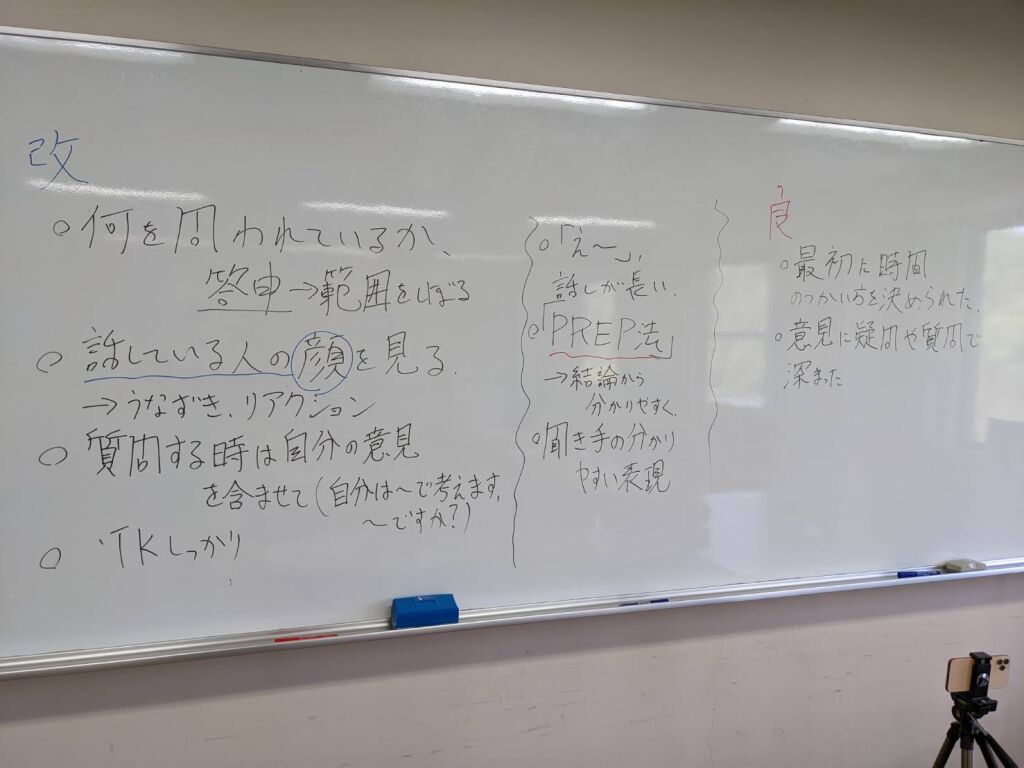 改
○何を問われているか、
答申→範囲をしぼる
○話している人の顔を見る.
→うなずき、リアクション
○質問する時は自分の意見
を含ませて(自分は〜で考えます,
〜ですか?)
○TKしっかり
○「え〜」,
話しが長い.
○「PREP法」
→結論から
分かりやすく.
○聞き手の分かり
やすい表現
良
○最初に時間
のつかい方を決められた.
○意見に疑問や質問で
深まった